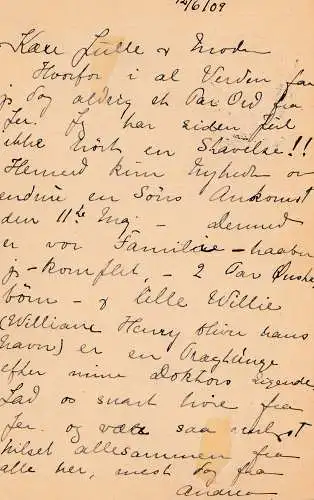 12/6/09
Kære Julle & Moder
Hvorfor i al Verden faar
jeg dog aldrig et Par Ord fra
Jer. Jeg har siden Jul
ikke hört en Stavelse!!
Hermed kun Nyheden om
endnu en Söns Ankomst
den 11te Maj – dermed
er vor Familie – haaber
jeg – komplet, – 2 Par Ønske
börn – & lille Willie
(William Henry bliver hans
Navn) er en Pragtunge
efter mine Doktors Sigende.
Lad os snart høre fra
Jer. og vær saa inderligst
hilset allesammen fra
alle her, mest dog fra
Andrea